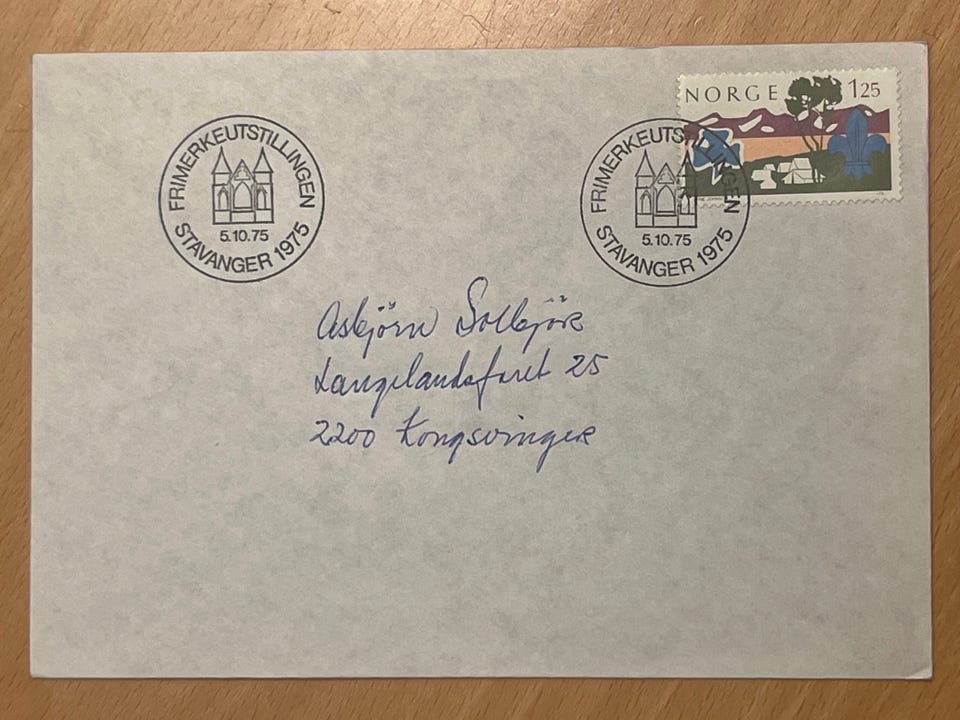 FRIMERKEUTSTILLINGEN
5.10.75
STAVANGER 1975
NORGE 125
FRIMERKEUTSTILLINGEN
5.10.75
STAVANGER 1975
Asbjörn Solbjör
Langelandsfaret 25
2200 Kongsvinger